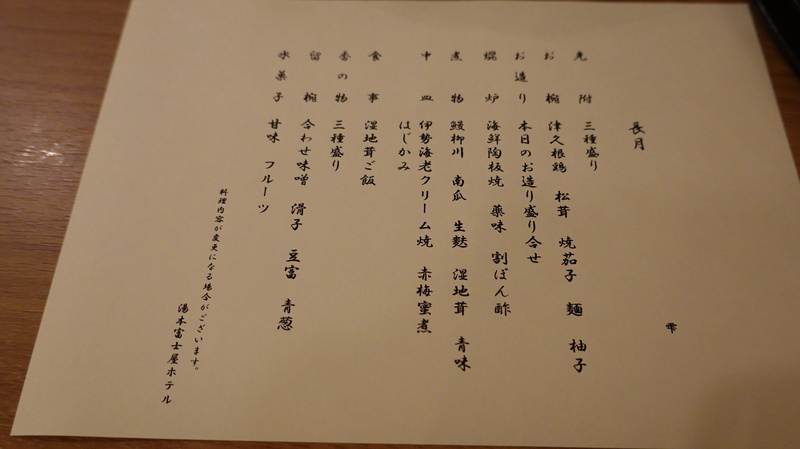 雫
長月
先附 三種盛り
お椀 津久根鶏 松茸 焼茄子 麺 柚子
お造り 本日のお造り盛り合せ
焜炉 海鮮陶板焼 薬味 割ぽん酢
煮物 鰻柳川 南瓜 生麩 湿地茸 青味
中皿 伊勢海老クリーム焼 赤梅蜜煮
はじかみ
食事 湿地茸ご飯
香の物 三種盛り
留椀 合わせ味噌 滑子 豆富 青葱
水菓子 甘味 フルーツ
料理内容が変更になる場合がございます。
湯本富士屋ホテル